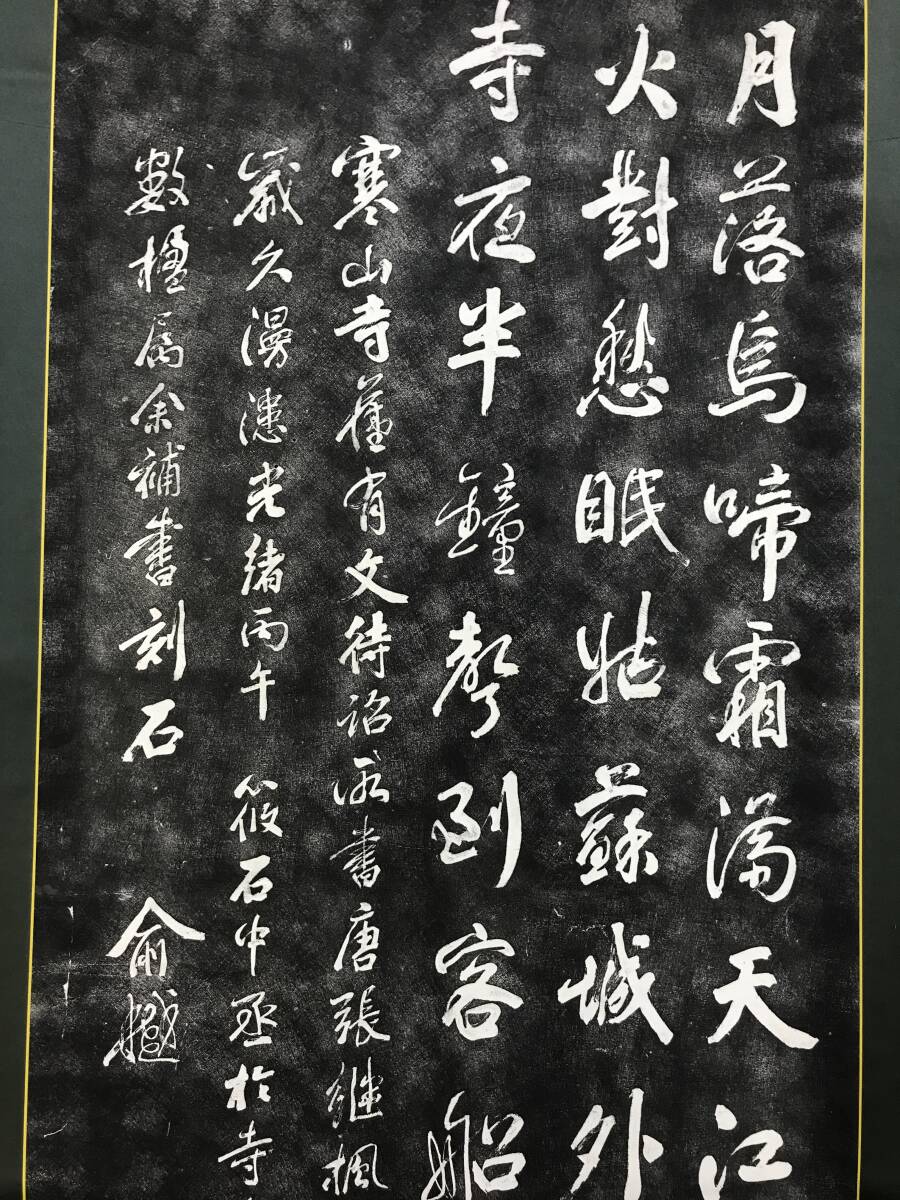 月落烏啼霜満天江
火對愁眠姑蘇城外
寺夜半鐘聲到客船
寒山寺舊有文待詔所書唐張繼楓
歲久漫漶光緒丙午筱石中丞於寺
數楹属余補書刻石
俞樾